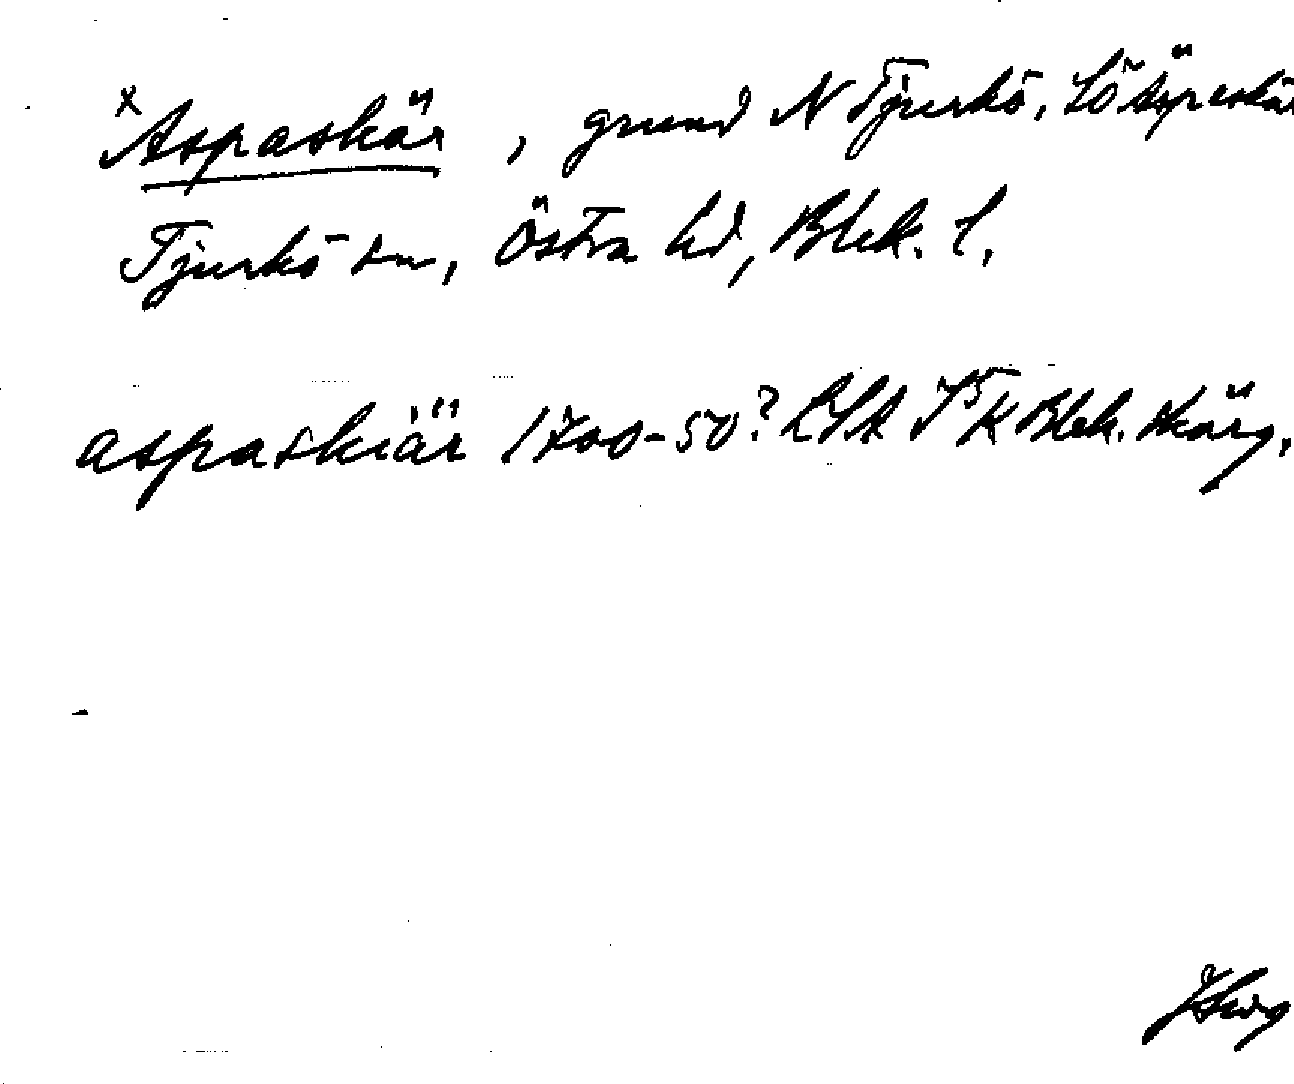 x Aspaskär, grund N Tjurkö, SÖ Äspeskär
Tjurkö sn, Östra hd, Blek. l.
aspaskiär 1700-50? LSA K Blek. skärg.